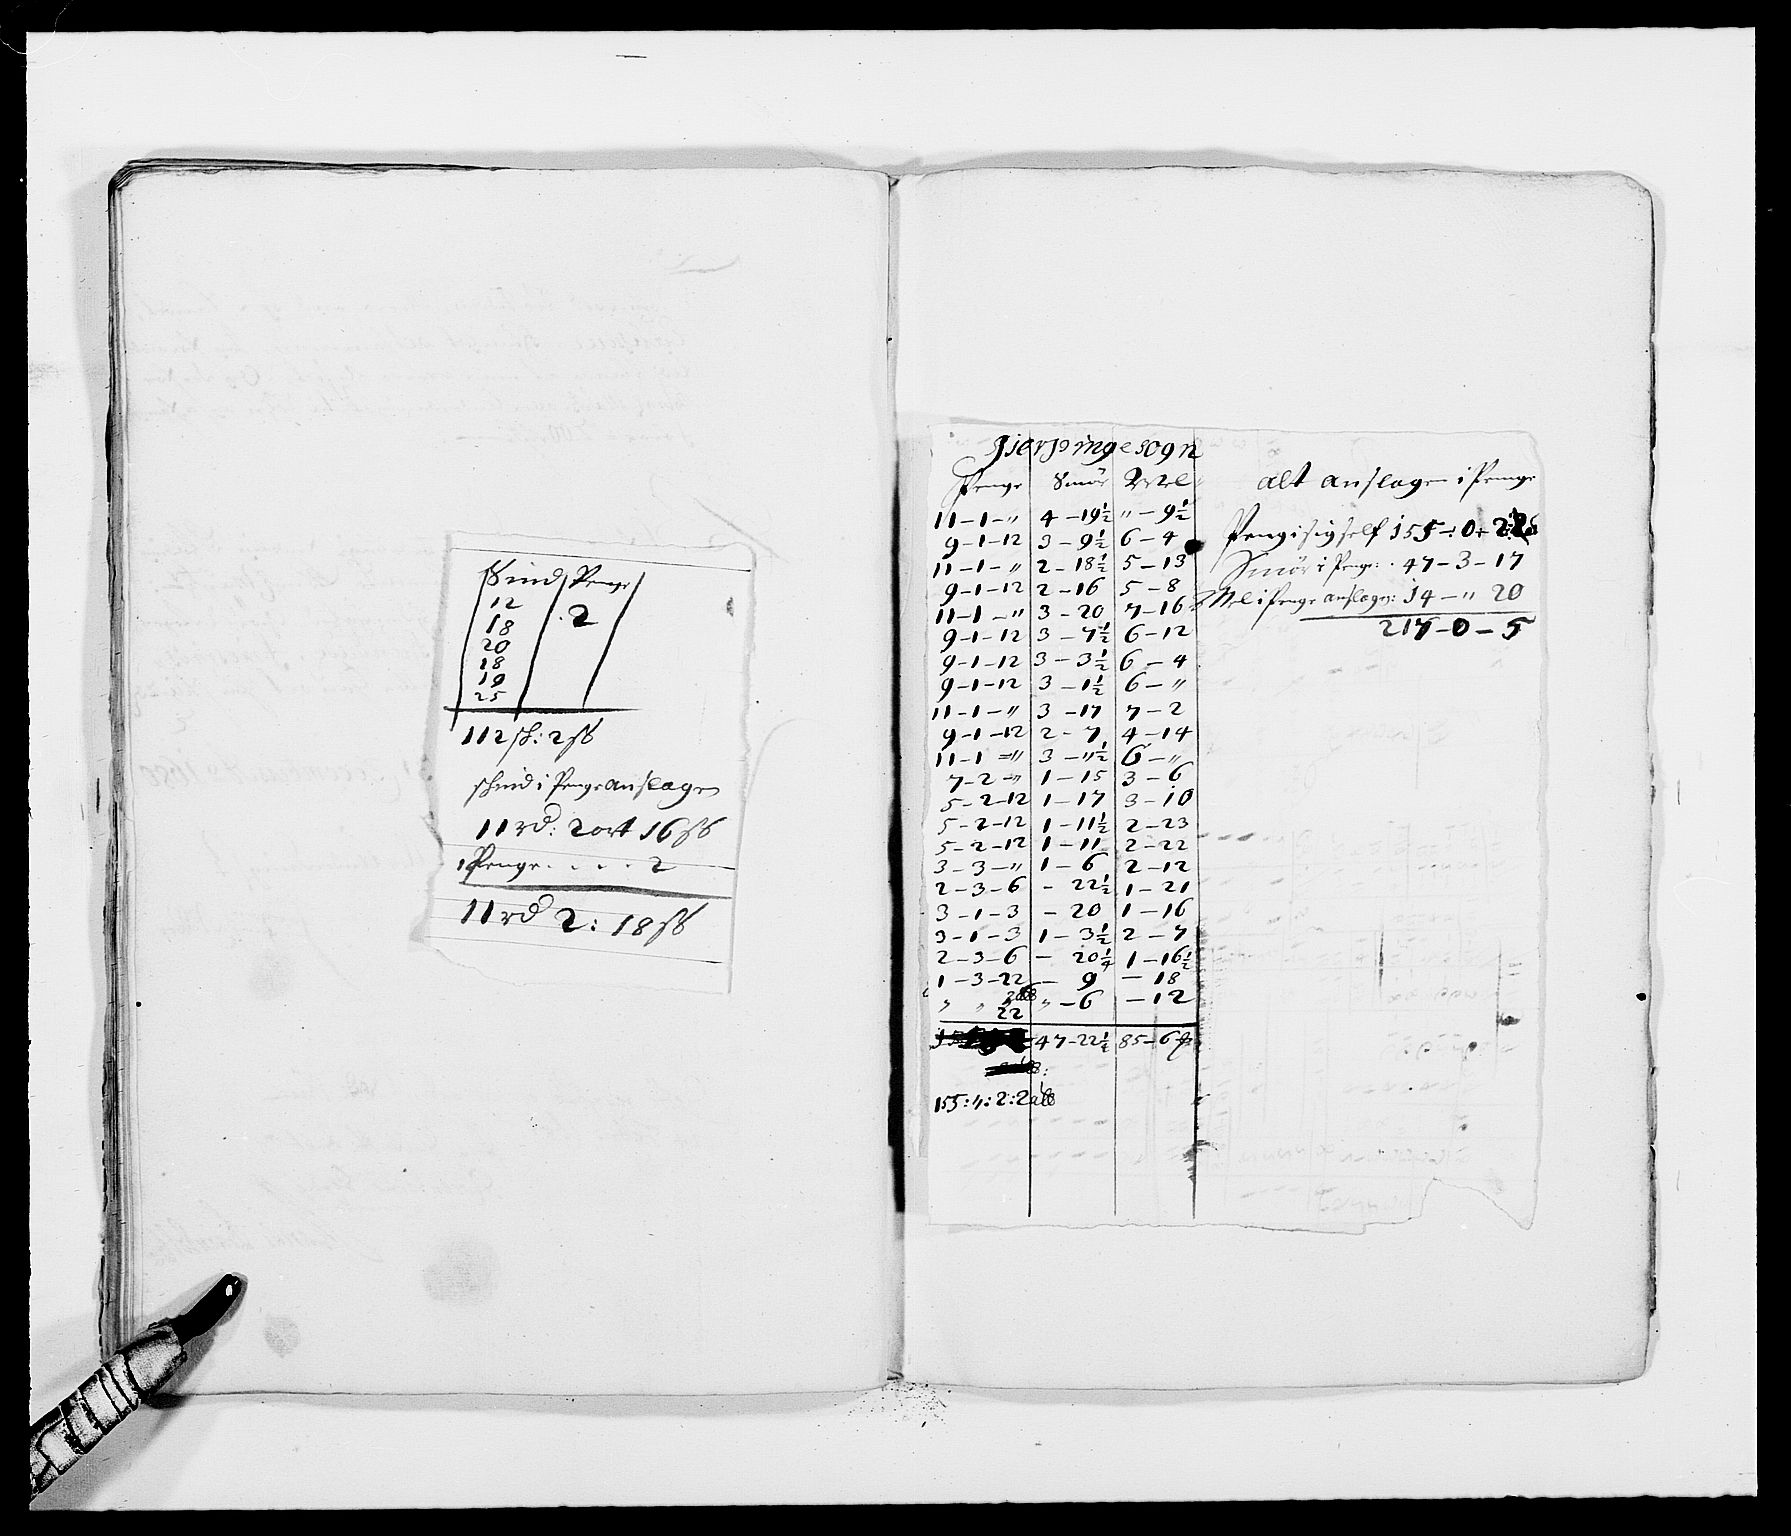 Skind Penge
12 2
18
20
18
19
25
112 sk: 2 sß
skind i Penge anslagen
11 rd: 2 ort 16 sß
Penge . . . . 2
11 rd 2: 18 sß
Gierpinge sogn
Penge Smör Mel
11-1-" 4-19½ "-9½
9-1-12 3-9½ 6-4
11-1-" 2-18½ 5-13
9-1-12 2-16 5-8
11-1-" 3-20 7-16
9-1-12 3-7½ 6-12
9-1-12 3-3½ 6-4
9-1-12 3-1½ 6-"
11-1-" 3-17 7-2
9-1-12 2-7 4-14
11-1-" 3-"½ 6-"
7-2-" 1-15 3-6
5-2-12 1-17 3-10
5-2-12 1-11½ 2-23
5-2-12 1-11 2-22
3-3-" 1-6 2-12
2-3-6 -22½ 1-21
3-1-3 -20 1-16
3-1-3 1-3½ 2-7
2-3-6 -20¼ 1-16½
1-3-22 -9 -18
" " 22 "-6 -12
47-22¼ 85-6
155:":2:2alb
alt anslagen i Penge
Pengi sig self 155-0-2:2
Smör i Penge: 47-3-17
Mel i Penge anslagen: 14-" 20
217-0-5